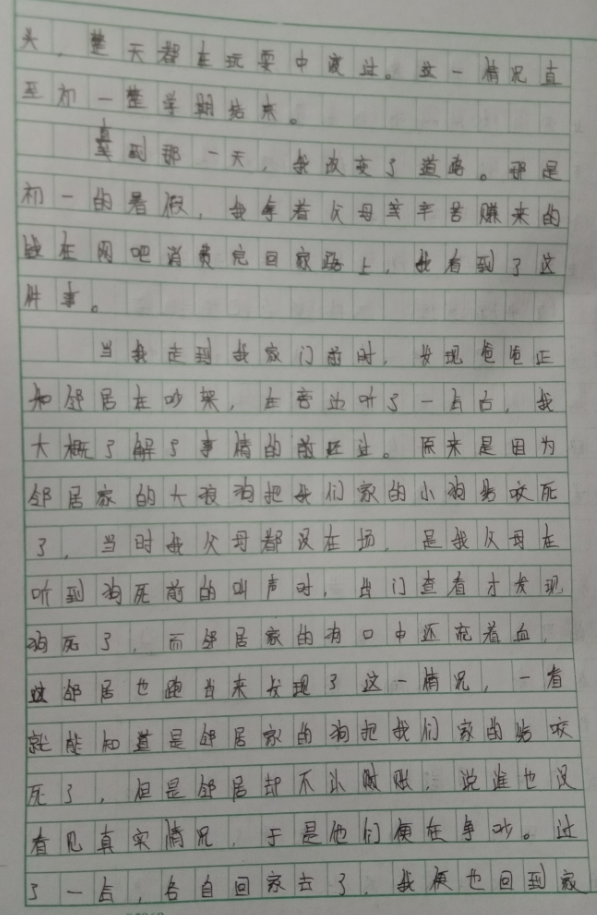 头，整天都在玩耍中度过。这一情况直
至初一整学期结束。
直到那一天，我改变了道路。那是
初一的暑假，我拿着父母辛苦赚来的
钱在网吧消费完回家路上，我看到了这
件事。
当我走到我家门前时，发现爸爸正
和邻居在吵架，在旁边听了一占占，我
大概了解了事情的前经过。原来是因为
邻居家的大狼狗把我们家的小狗给咬死
了，当时我父母都没在场，是我父母在
听到狗死前的叫声时，出门查看才发现
狗死了，而邻居家的狗口中还流着血，
这邻居也跑出来发现了这一情况，一看
就能知道是邻居家的狗把我们家的给咬
死了，但是邻居却不认账，说谁也没
看见真实情况，于是他们便在争吵。过
了一占，各自回家去了，我便也回到家